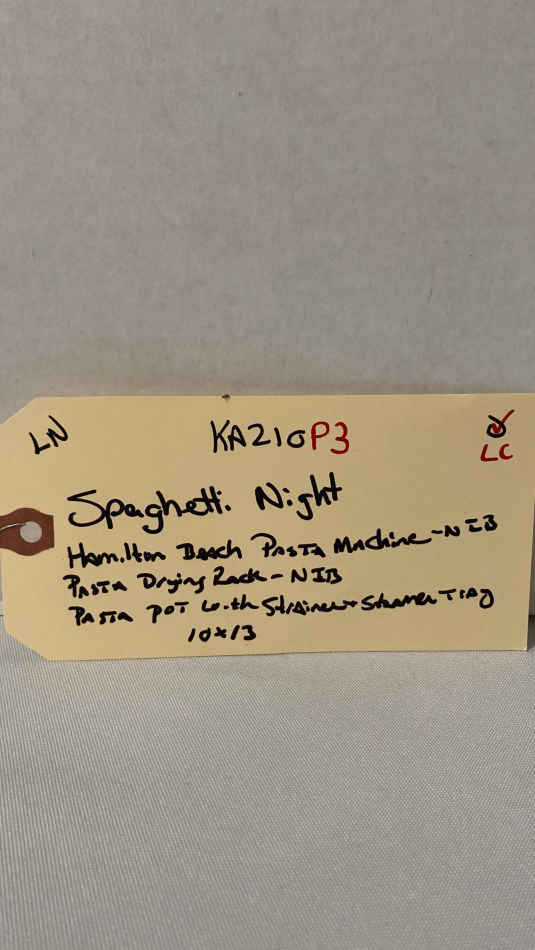 LN
KA210P3
LC
Spaghetti Night
Hamilton Beach Pasta Machine - NIB
Pasta Drying Rack - NIB
Pasta Pot with Strainer + Steamer Tray
10x13